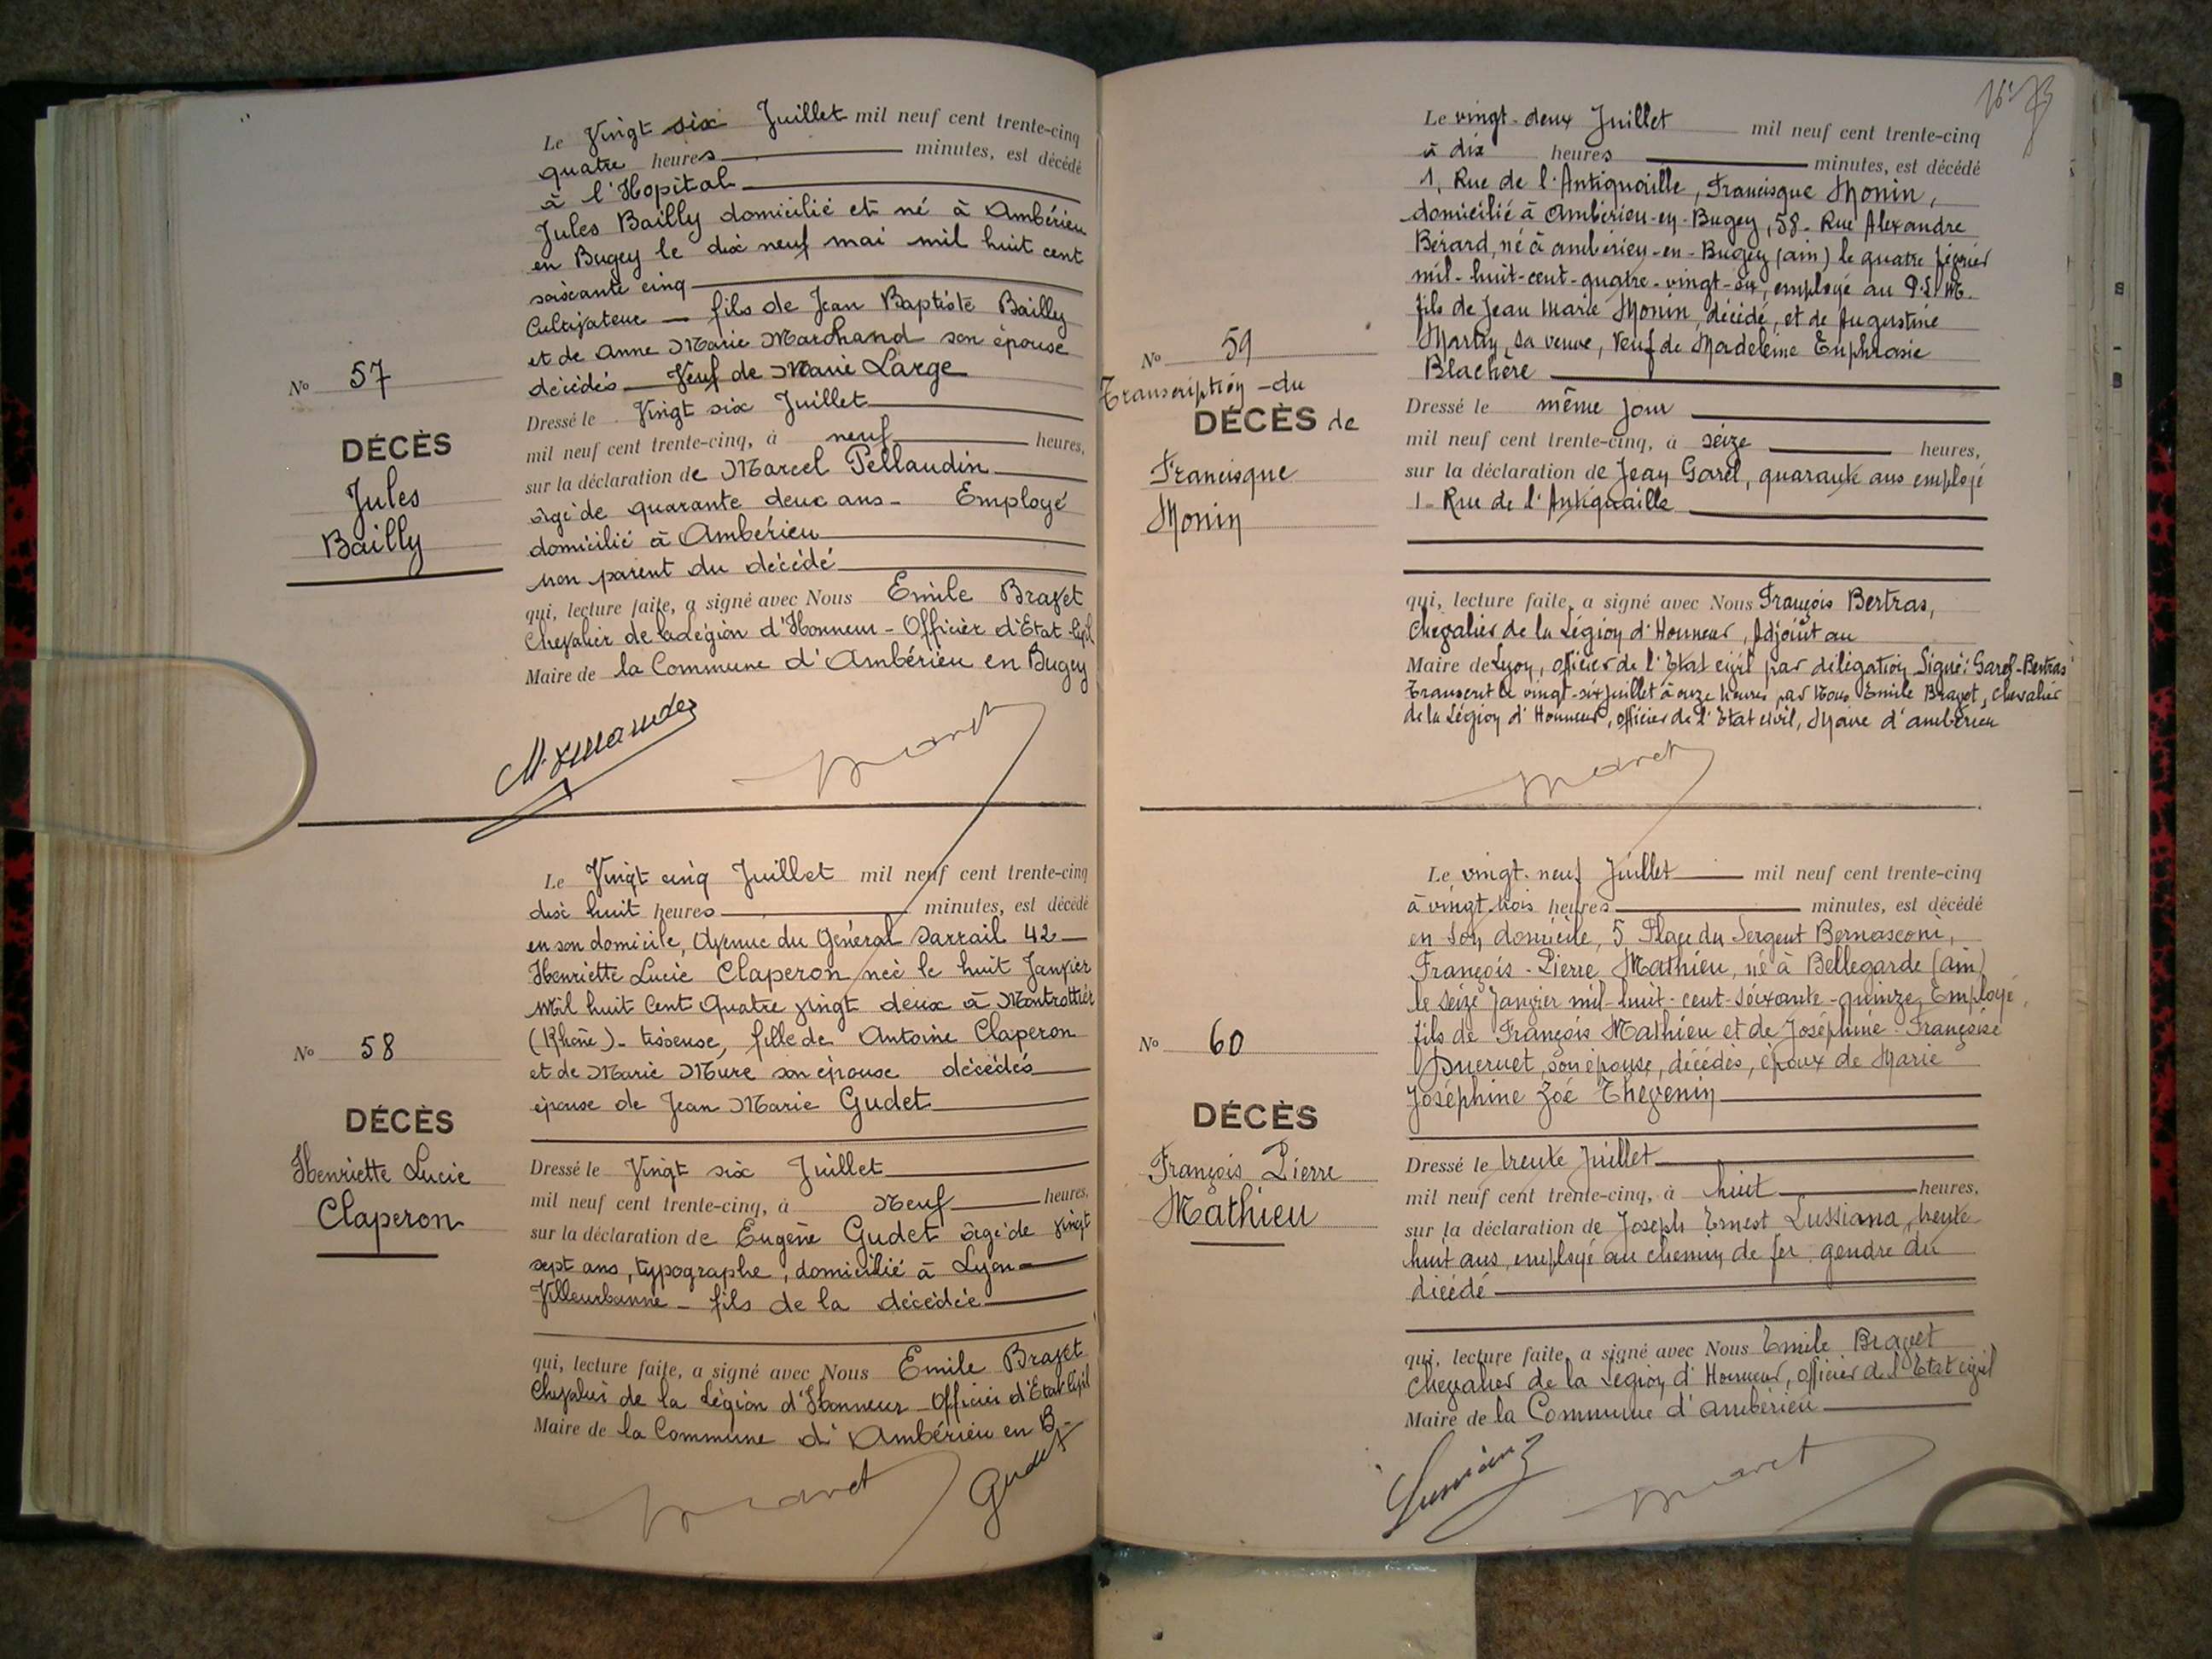 Le Vingt six Juillet mil neuf cent trente-cinq
quatre heures minutes, est décédé
à l'Hopital
Jules Bailly domicilié et né à Ambérieu
en Bugey le dix neuf mai mil huit cent
soixante cinq
Cultivateur — fils de Jean Baptiste Bailly
et de Anne Marie Marchand son épouse
décédés — Veuf de Marie Large
No 57
DÉCÈS
Jules
Bailly
Dressé le Vingt six Juillet
mil neuf cent trente-cinq, à neuf heures,
sur la déclaration de Marcel Pellaudin
âgé de quarante deux ans - Employé
domicilié à Ambérieu
non parent du décédé
qui, lecture faite, a signé avec Nous Emile Bravet
Chevalier de la Légion d'Honneur - Officier d'Etat Civil
Maire de la Commune d'Ambérieu en Bugey
Le Vingt cinq Juillet mil neuf cent trente-cinq
dix huit heures minutes, est décédé
en son domicile, Avenue du Général Sarrail 42
Henriette Lucie Claperon née le huit Janvier
mil huit Cent Quatre vingt deux à Montrottier
(Rhône) - tisseuse, fille de Antoine Claperon
et de Marie Mure son épouse décédés
épouse de Jean Marie Gudet
No 58
DÉCÈS
Henriette Lucie
Claperon
Dressé le Vingt six Juillet
mil neuf cent trente-cinq, à Neuf heures,
sur la déclaration de Eugène Gudet âgé de vingt
sept ans, typographe, domicilié à Lyon
Villeurbanne - fils de la décédée
qui, lecture faite, a signé avec Nous Emile Bravet
Chevalier de la Légion d'Honneur - Officier d'Etat Civil
Maire de la Commune d'Ambérieu en B.
Gudet
Le vingt-deux Juillet mil neuf cent trente-cinq
à dix heures minutes, est décédé
1, Rue de l'Antiquaille, Francisque Monin,
domicilié à Ambérieu-en-Bugey, 58 - Rue Alexandre
Bérard, né à Ambérieu-en-Bugey (Ain) le quatre février
mil-huit-cent-quatre-vingt- employé au P.L.M.
fils de Jean Marie Monin, décédé, et de Augustine
Martin, sa veuve, Veuf de Madeleine Euphrasie
Blachère
No 59
Transcription du
DÉCÈS de
Francisque
Monin
Dressé le même jour
mil neuf cent trente-cinq, à seize heures,
sur la déclaration de Jean Garel, quarante ans employé
1 - Rue de l'Antiquaille
qui, lecture faite, a signé avec Nous François Bertras,
Chevalier de la Légion d'Honneur, Adjoint au
Maire de Lyon, officier de l'Etat civil par délégation Signé: Garel-Bertras
Transcrit le vingt-six juillet à onze heures par Nous Emile Bravet, Chevalier
de la Légion d'Honneur, officier de l'Etat civil, Maire d'Ambérieu
Le vingt-neuf Juillet mil neuf cent trente-cinq
à vingt-trois heures minutes, est décédé
en son domicile, 5 Place du Sergent Bernasconi,
François-Pierre Mathieu, né à Bellegarde (Ain)
le seize Janvier mil-huit-cent-soixante-quinze, Employé,
fils de François Mathieu et de Joséphine-Françoise
son épouse, décédés, époux de Marie
Joséphine Zoé Thévenin
No 60
DÉCÈS
François Pierre
Mathieu
Dressé le trente Juillet
mil neuf cent trente-cinq, à huit heures,
sur la déclaration de Joseph Ernest Lussiana, trente
huit ans, employé au chemin de fer gendre du
décédé
qui, lecture faite, a signé avec Nous Emile Bravet
Chevalier de la Légion d'Honneur, officier de l'Etat civil
Maire de la Commune d'Ambérieu